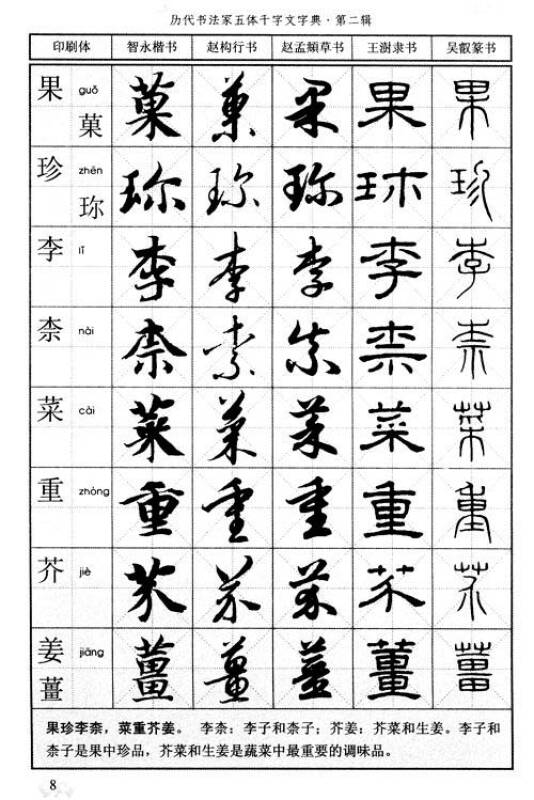 历代书法家五体千字文字典·第二辑
印刷体 智永楷书 赵构行书 赵孟頫草书 王澍隶书 吴叡篆书
果 guǒ 菓 菓 菓 果 果 果
珍 zhēn 珎 珎 珎 珎 珍 珍
李 lǐ 李 李 李 李 李
柰 nài 柰 柰 柰 柰 柰
菜 cài 菜 菜 菜 菜 菜
重 zhòng 重 重 重 重 重
芥 jiè 芥 芥 芥 芥 芥
姜 jiāng 薑 薑 薑 薑 薑 薑
果珍李柰，菜重芥姜。 李柰：李子和柰子；芥姜：芥菜和生姜。李子和
柰子是果中珍品，芥菜和生姜是蔬菜中最重要的调味品。
8